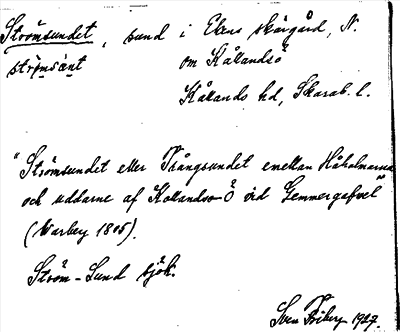 Strömsundet, sund i Ekens skärgård, N.
strömsùnt om Kållandsö
Kållands hd, Skarab. l.
"Strömsundet eller Trångsundet emellan Håholmarna
och uddarne af Kollands-Ö vid Gemmergafvel"
(Warberg 1805).
Ström-Sund sjök.
Sven Friberg 1927.